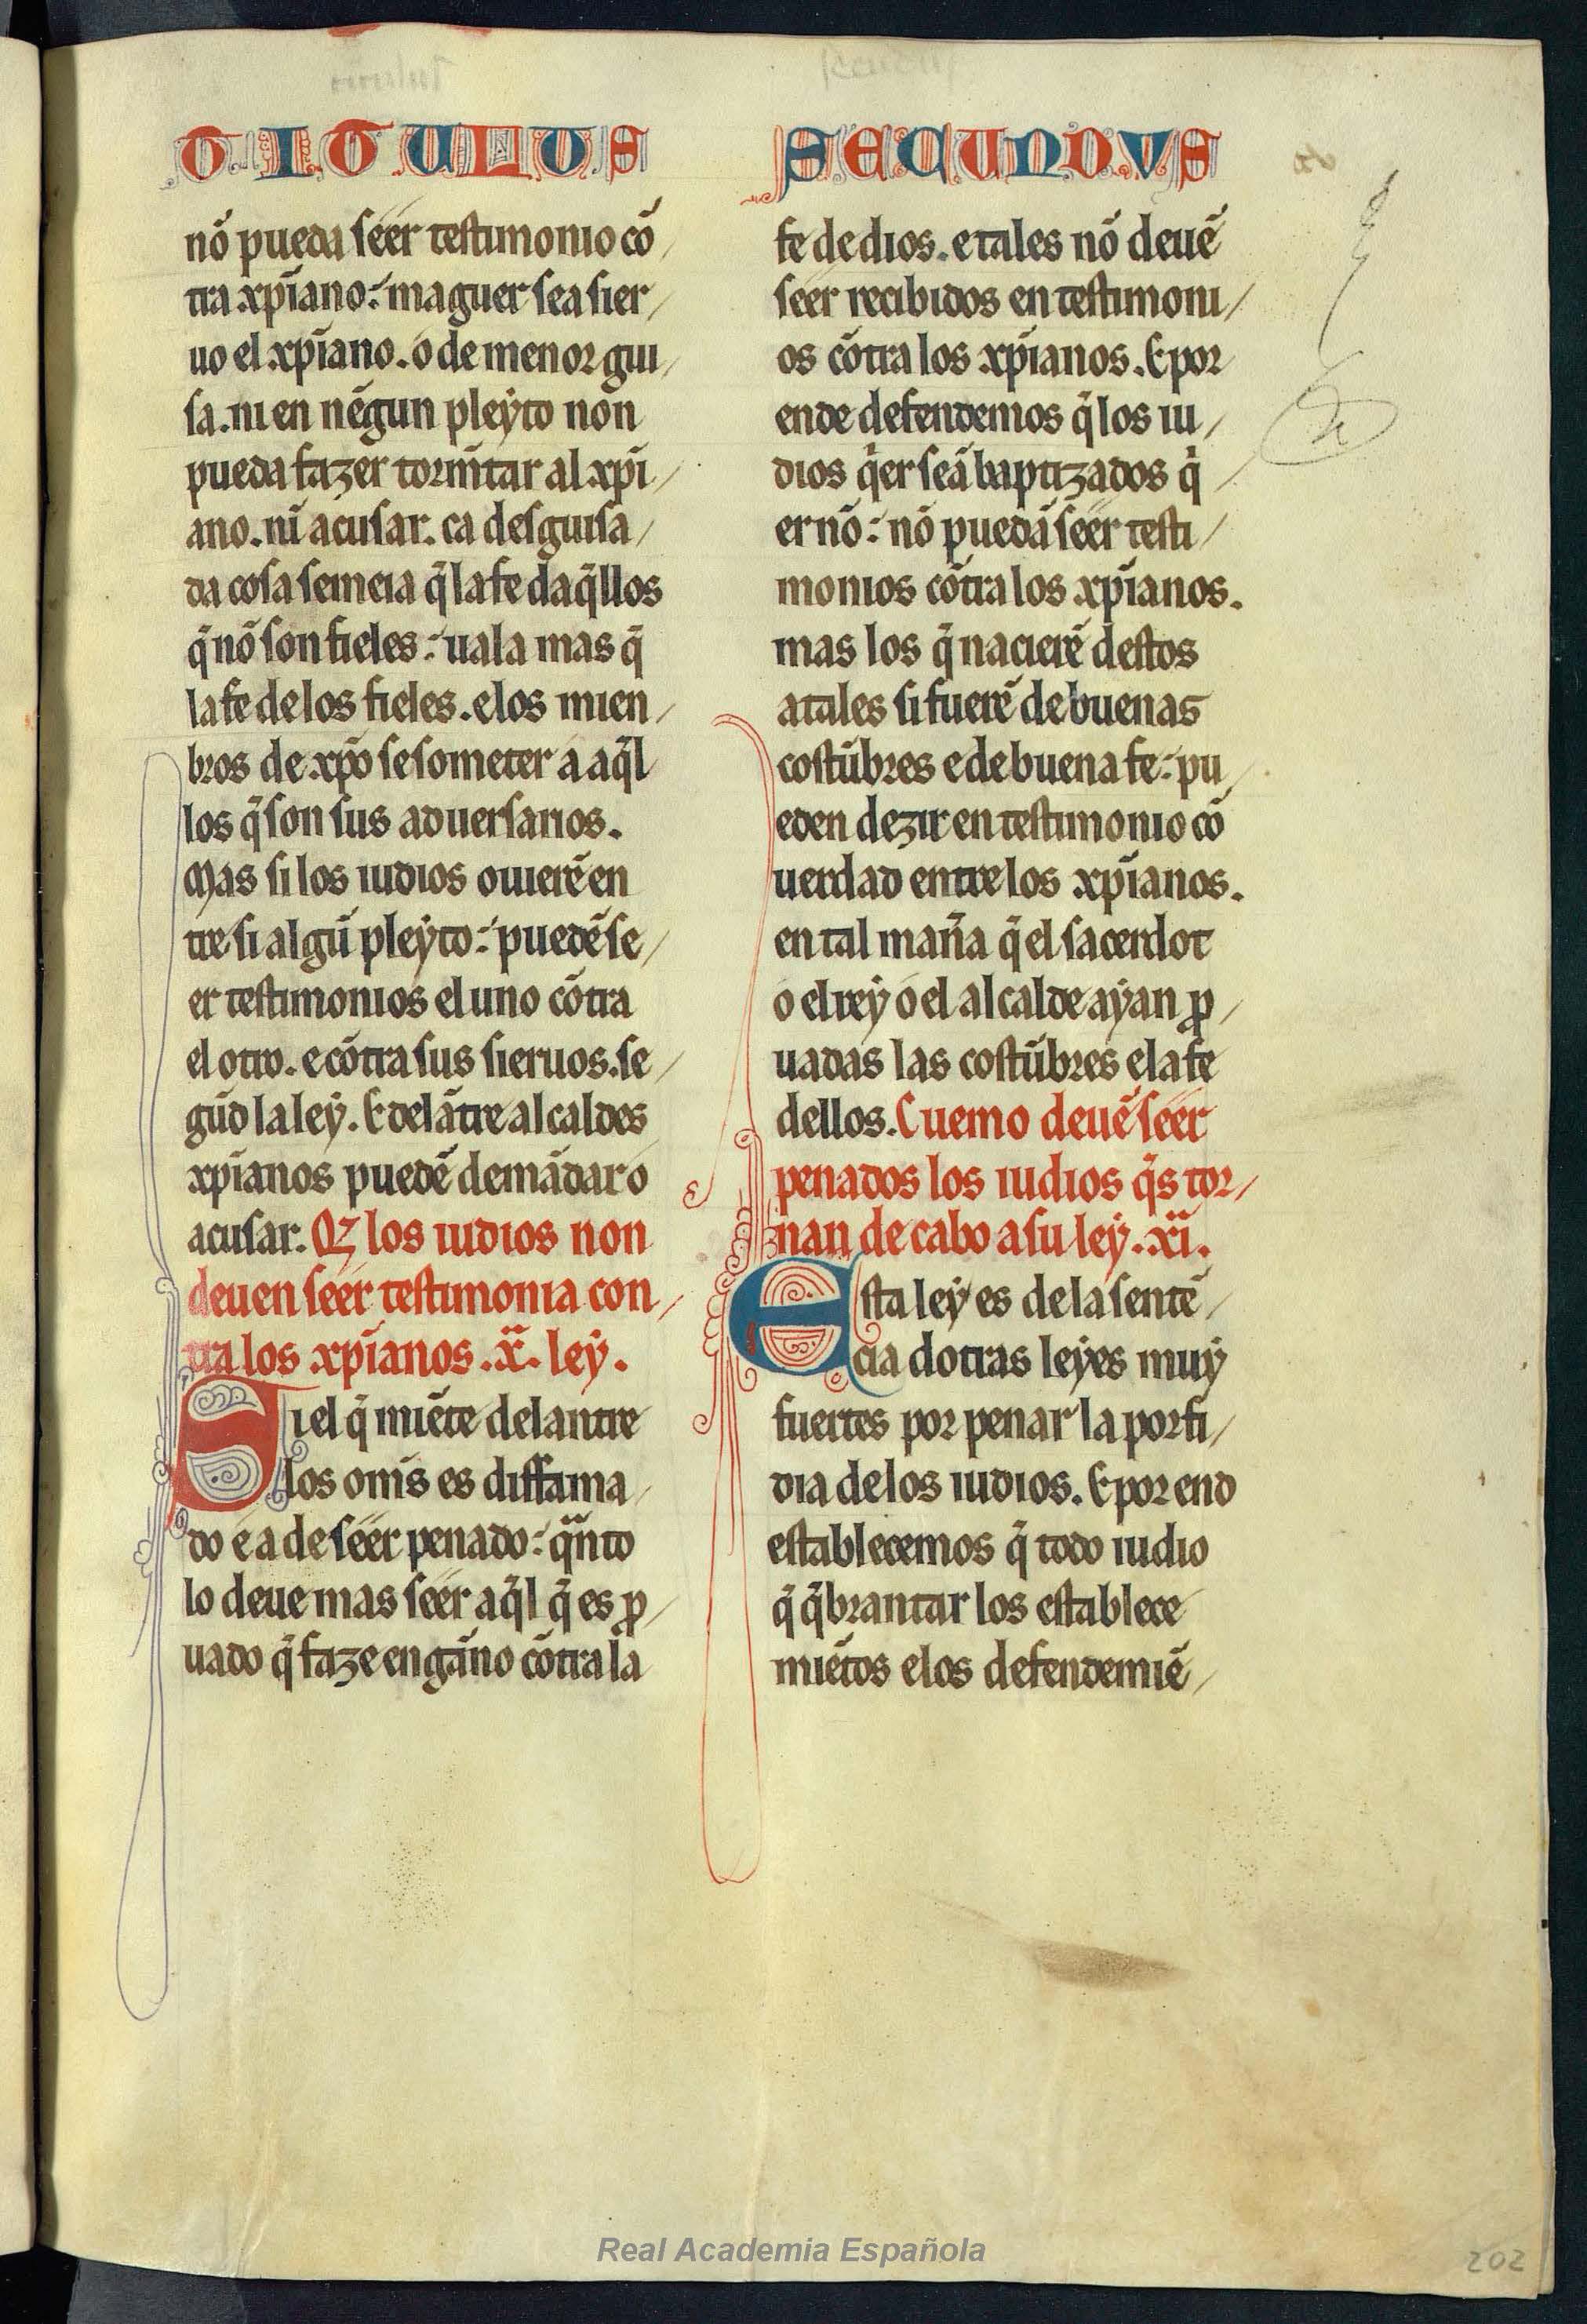 TITULUS
nõ pueda seer testimonio cõ
tra xp̃iano: maguer sea sier
uo el xp̃iano. o de menor gui
sa. ni en nẽgun pleyto non
pueda fazer torm̃tar al xp̃i
ano. nĩ acusar. ca desguisa
da cosa semeia q̃ la fe daq̃llos
q̃ nõ son fieles: uala mas q̃
la fe delos fieles. e los mien
bros de xp̃o se someter a aq̃l
los q̃ son sus aduersarios.
Mas si los iudios ouierẽ en
tre si algũ pleyto: puedẽ se
er testimonios el uno cõtra
el otro. e cõtra sus sieruos. se
gũd la ley. E delãtre alcaldes
xp̃ianos puedẽ demãdar o
acusar. Qz los iudios non
deuen seer testimonia con
tra los xp̃ianos. .x.ª ley.
Si el q̃ miẽte delantre
los om̃s es diffama
do e a de seer penado: qũnto
lo deue mas seer aq̃l q̃ es ꝓ
uado q̃ faze engãno cõtra la
SECUNDUS
fe de dios. e tales nõ deuẽ
seer recibidos en testimoni
os cõtra los xp̃ianos. E por
ende defendemos q̃ los iu
dios q̃er seã baptizados q̃
er nõ: nõ puedã seer testi
monios cõtra los xp̃ianos.
mas los q̃ nacierẽ destos
atales si fuerẽ de buenas
costũbres e de buena fe: pu
eden dezir en testimonio cõ
uerdad entre los xp̃ianos.
en tal mañа q̃ el sacerdot
o el rey o el alcalde ayan ꝓ
uadas las costũbres e la fe
dellos. Cuemo deuẽ seer
penados los iudios q̃s tor
nan de cabo a su ley. .xi.
Esta ley es de la sentẽ
cia dotras leyes muy
fuertes por penar la porfi
dia delos iudios. E por end
establecemos q̃ todo iudio
q̃ q̃brantar los establece
miẽtos e los defendemiẽ
Real Academia Española
202